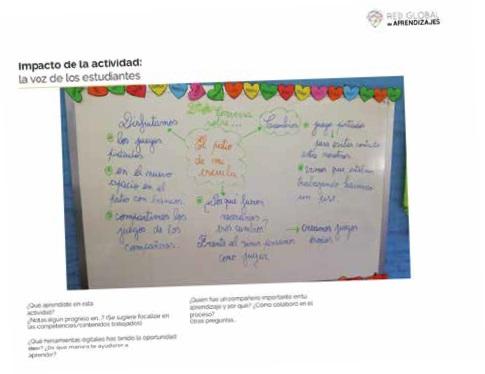 RED GLOBAL
DE APRENDIZAJES
Impacto de la actividad:
la voz de los estudiantes
conversa
sobre...
Disfrutamos
los juegos
pintados
en el nuevo
espacio en el
patio con bancos.
compartimos los
juegos de los
compañeros.
El patio
de mi
escuela
Cambios
juego pintados
para evitar contacto
entre nosotros.
vimos que estaban
trabajando hacemos
un
creamos juegos
Lo que fuimos
nosotros
tres cambios?
Frente al virus
como jugar
¿Qué aprendiste en esta
actividad?
¿Notas algún progreso en..? (Se sugiere focalizar en
las competencias/contenidos trabajados)
¿Qué herramientas digitales has tenido la oportunidad
¿De qué manera te ayudaron a
aprender?
¿Quién fue un compañero importante en tu
aprendizaje y por qué? ¿Cómo colaboró en el
proceso?
Otras preguntas...